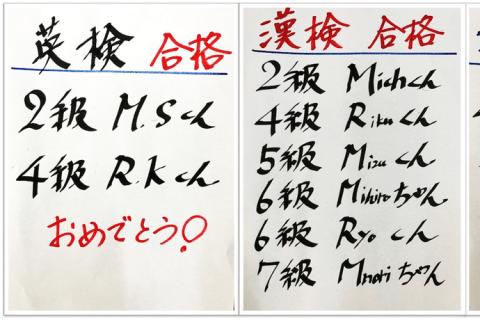 英検 合格
2級 M.Sくん
4級 R.Kくん
おめでとう!
漢検 合格
2級 Michくん
4級 Rikuくん
5級 Mizuくん
6級 Mihiroちゃん
6級 Ryoくん
7級 Mnoriちゃん